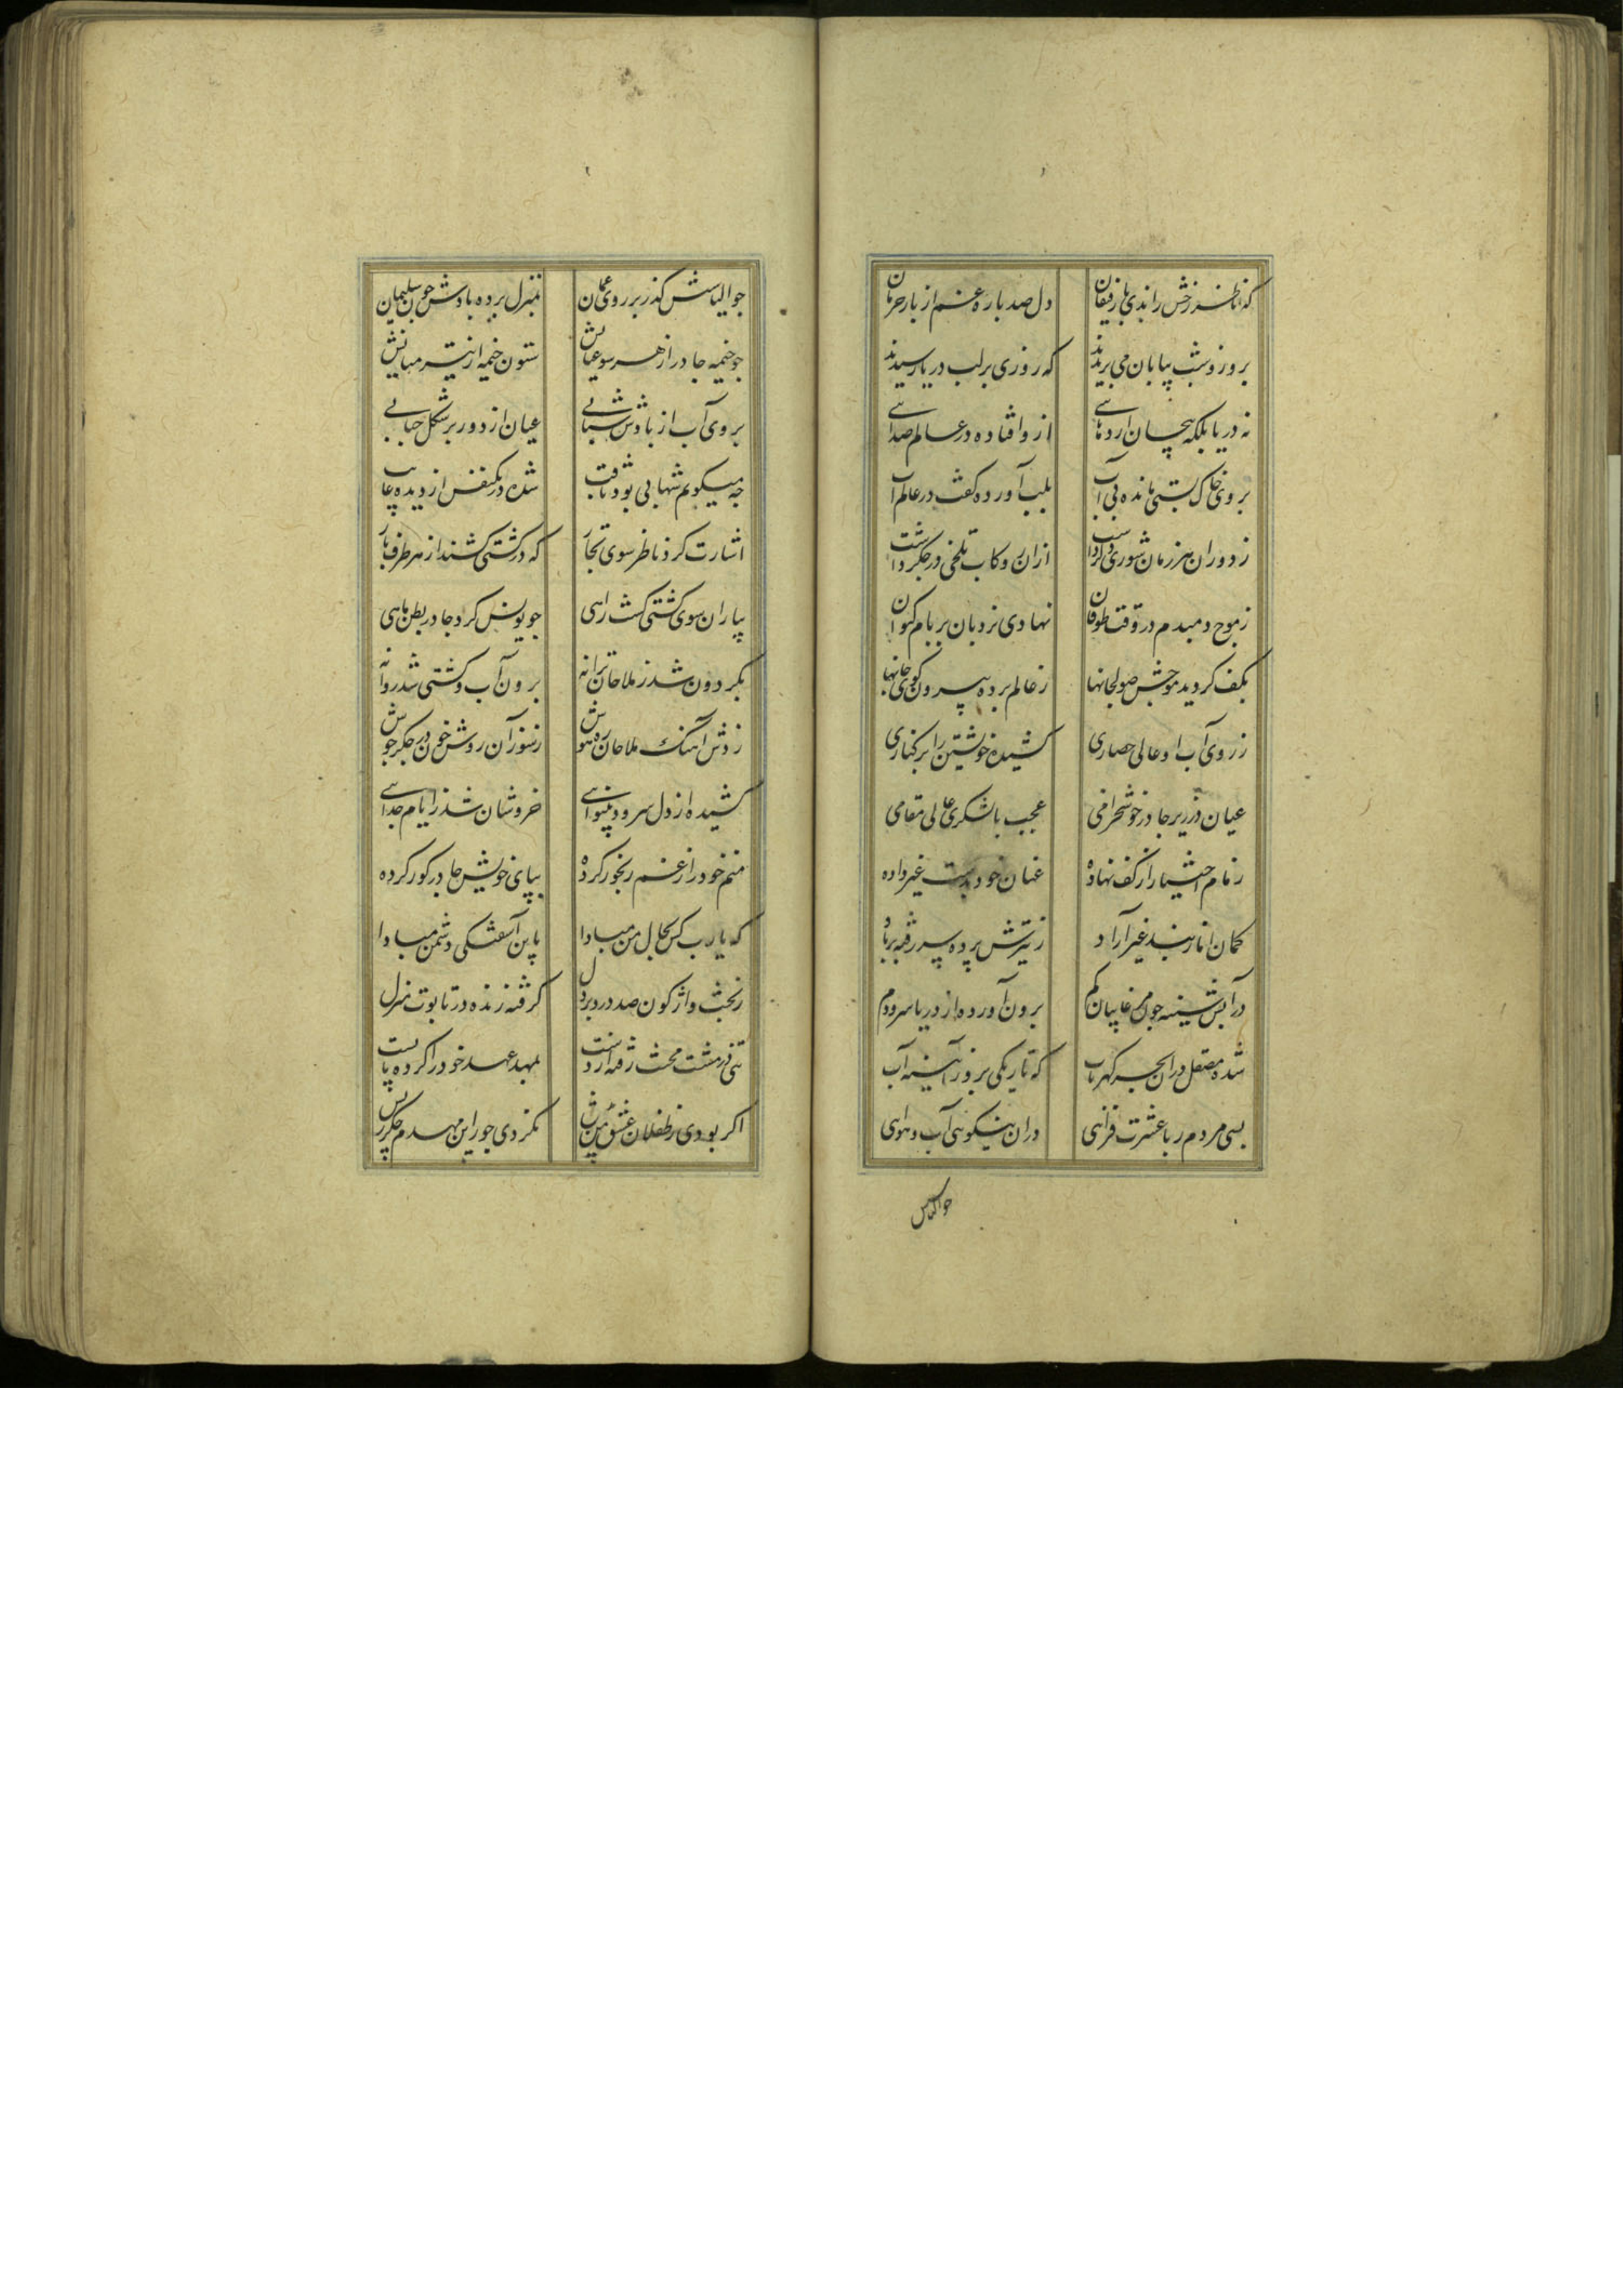 که ناظر رخش راندی با رفیقان دل صد باره غم از بار حرمان
بروز و شب بیابان می بریدند که روزی بر لب دریا رسیدند
نه دریا بلکه پیچان اژدهایی ازو افتاده در عالم صدایی
بروی خاک بستی مانده بی آب بلب آورده کف در عالم آب
ز دوران هر زمان شوری دگر داشت ازان رو کاب تلخی در جکر داشت
ز موج دمبدم در وقت طوفان نهادی نردبان بر بام کیوان
بکف کردید موجش صولجانها ز عالم برده بیرون کوی جانها
ز روی آب او عالی حصاری کشیده خویشتن را بر کناری
عیان در زیر چادر خوشخرامی عجب با عالی مقامی
زمام اختیار از کف نهاده عنان خود بدست غیر داده
کمان اما ز بند غیر آزاد ز تیرش برده رفته برباد
در آبش سینه چون مرغابیان کم برون آورده از دریا سر و دم
شده صیقل دران بحر کهر تاب که تاریکی برد ز آینه آب
بسی مردم ربا عشرت فزایی دران آب و هوایی
جوالیاس
جو الیاسش کذر بر روی عمان بمنزل برده بادش جون سلیمان
جو خیمه جادر از هر سو عیانش ستون خیمه از تیر میانش
بروی آب از بادش شتابی عیان از دور بر شکل حبابی
جه میکویم شهابی بود ثاقب شده در یکنفس از دیده غایب
اشارت کرد ناظر سوی تجار که در کشتی کشند از هر طرف بار
بیاران سوی کشتی کشت راهی جو یونس کرد جا در بطن ماهی
بکردون شد ز ملاحان ترانه برون آب و کشتی شد روانه
زدش آهنک ملاحان ره هوش ز سوز آن روش خون در جکر جوش
کشیده از دل سرود بینوایی خروشان شد ز ایام جدایی
منم خود را ز غم رنجور کرده بپای خویش جا در کور کرده
که یارب کس بحال من مبادا باین آشفتکی دشمن مبادا
ز بخت واژکون صد درد بر دل کرفته زنده در تابوت منزل
تنی در مشت محنت رفته از دست بمهد عهد خود را کرده پابست
اکر بودی ز طفلان عشق من بیش نکردی جور این مهدم جکر ریش